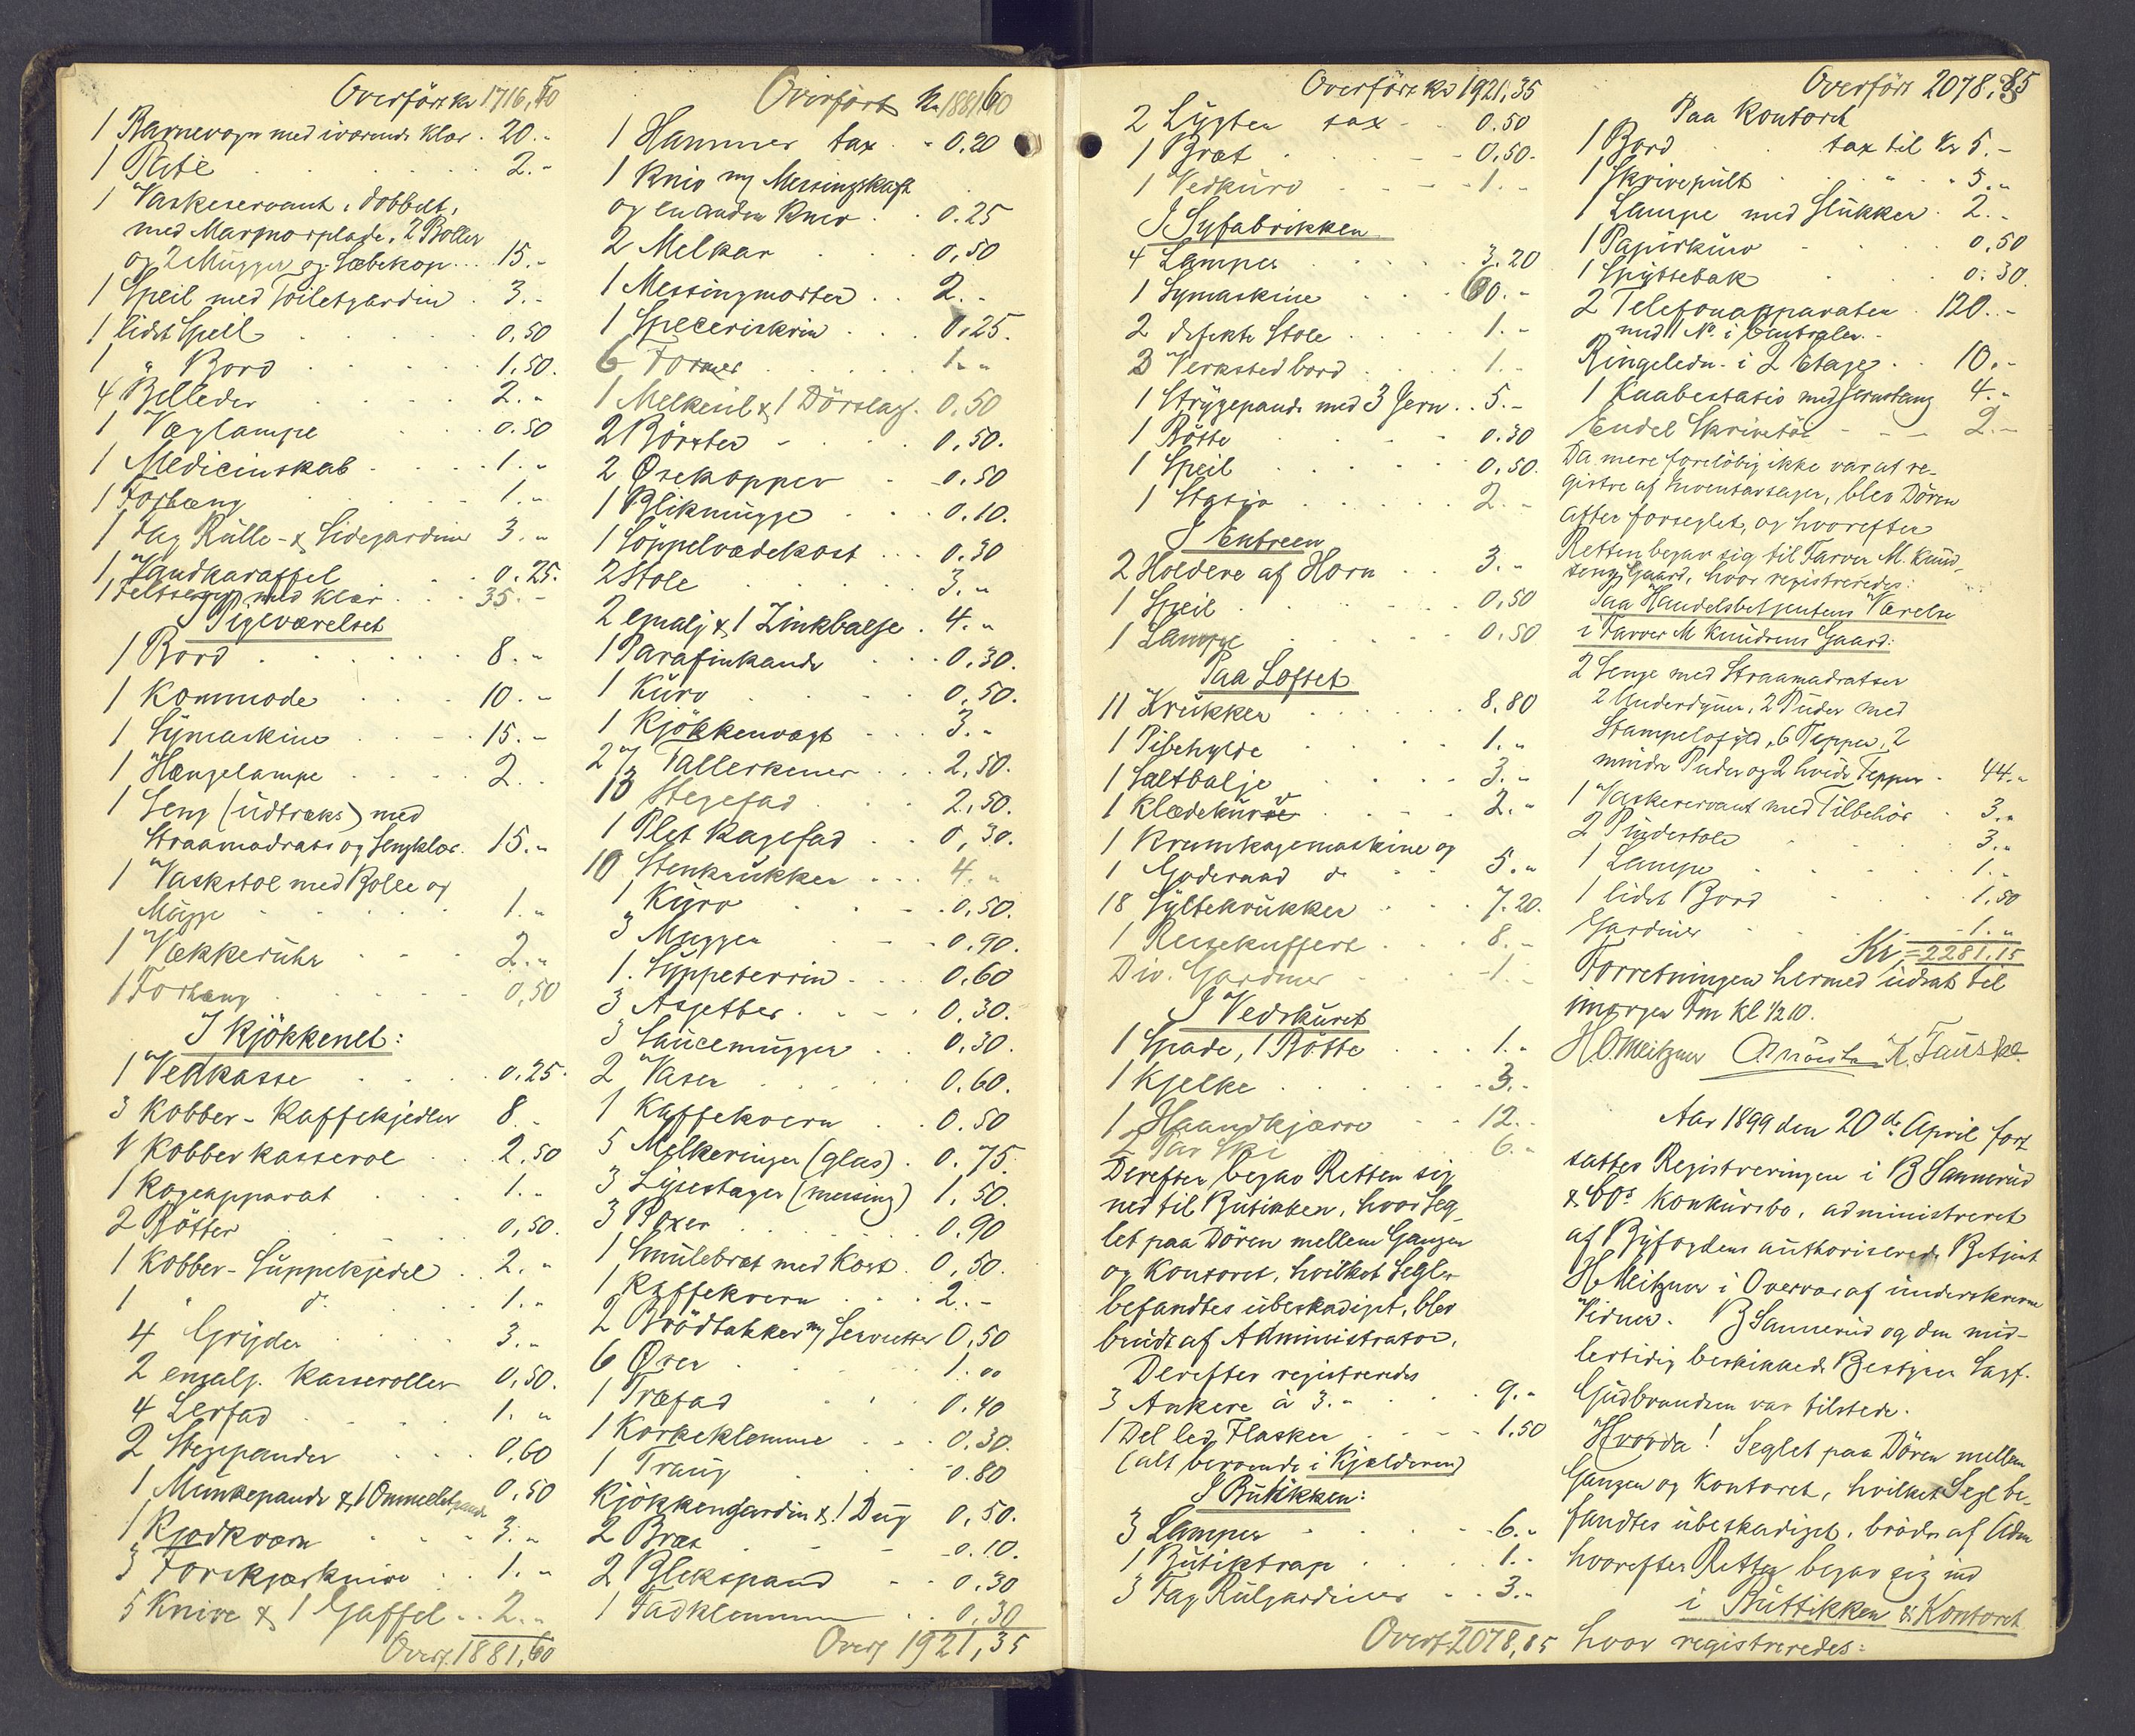 Overført kr 1716,50
1 Barnevogn med iværende klær . 20.-
1 Paté . . . 2.-
1 Vaskeservant, dobbelt,
med Marmorplade, 2 Boller
og 2 Mugger og Sæbekop . . 15.-
1 Speil med Toiletgardin . 3.-
1 lidet Speil . . . 0,50
1 " Bord . . . 1,50.
4 Billeder . . . 2."
1 Væglampe . . . 0.50
1 Medicinskab . . . 1."
1 Forhæng . . . 1."
1 Fag Rulle- & Sidegardiner 3."
1 Vandkaraffel . . 0.25.
1 Feltseng med klær . . 35.-
I Pigeværelset
1 Bord . . . 8."
1 Kommode . . . 10.-
1 Symaskine . . . 15.-
1 Hængelampe . . . 2..
1 Seng (udtræks) med
Straamadrats og Sengklær. 15."
1 Vaskstol med Bolle og
Mugge . . . 1."
1 Vækkeruhr . . . 2."
1 Forhæng . . . 0,50
I Kjökkenet:
1 Vedkasse . . . 0.25.
3 Kobber-Kaffekjedler 8.
1 Kobber kasserol . . 2.50
1 Kogeapparat . . . 1."
2 Bötter . . . 0,50.
1 Kobber-Suppekjedel . . 2."
1 " do. . . 1."
4 Gryder . . . 3."
2 emalj. Kasseroller 0,50.
4 Lerfad . . . 1."
2 Stegepander . . . 0,60
1 Munkepande & 1 Ommeletpande 0,50
1 Kjødkværn . . . 3."
3 Forskjærknive . . 1."
5 Knive & 1 Gaffel . . 2."
Overf. 1881,60
Overført kr 1881,60
1 Hammer tax. . 0.20
1 Kniv m/ Messingskaft
og en anden Kniv . . 0.25
2 Melkar . . . 0,50
1 Messingmorter . . 2.-
1 Speceriskrin . . 0.25.
6 Former . . . 1."
1 Melkesil & 1 Dörslag. 0,50
2 Börster . . . 0,50.
2 Øsekopper . . 0,50
1 Blikmugge . . . 0.10.
1 Söppelvadekost . . . 0.30
2 Stole . . . 3."
2 emalj & 1 Zinkbalje . 4."
1 Parafinkande . . . 0.30.
1 Kurv . . . 0,50.
1 Kjökkenvægt . . . 3."
27 Tallerkener . . . 2,50.
13 Stegefad . . . 2,50.
1 Plet Kagefad . . 0,30.
10 Stenkrukker . . . 4."
1 Kurv . . . 0,50.
3 Mugger . . . 0,90.
1 Suppeterrin . . . 0.60
3 Asjetter . . . 0.30.
3 Saucemugger . . 0,30.
2 Vaser . . . 0.60.
1 Kaffekvern . . 0.50
5 Melkeringer (glas) . 0.75.
3 Lysestager (messing) 1,50.
3 Boxer . . . 0.90
1 Smulebræt med Kost . 0,50.
1 Kaffekvern . . . 2.-
2 Brödbakker m/ Servietter 0,50
6 Øser . . . 1.00
1 Træfad . . . 0.40
1 Korkeklemme . . . 0.30.
1 Traug . . . 0.80
Kjökkengardin & 1 Dug 0,50.
2 Bræt . . . 0.10.
2 Blekspand . . 0,30
1 Fadklemme . . 0,30
Overf 1921,35
Overført kr 1921.35
2 Lygter tax . . 0.50
1 Bræt . . . 0,50.
1 Vedkurv . . . 1.-
I Syfabrikken
4 Lamper . . . 3.20
1 Symaskine . . . 60.-
2 defekte Stole . . 1.-
3 Verkstedbord . . . 1.-
1 Strygepande med 3 Jern . . 5.-
1 Bötte . . . 0.30
1 Speil . . . 0,50.
1 Stasjo . . . 2.-
I Entreen
2 Holdere af Horn . . 3."
1 Speil . . . 0,50
1 Lampe . . . 0,50
Paa Loftet
11 Krukker . . . 8.80
1 Pibehylde . . . 1."
1 Saltbalje . . . 3."
1 Klædekurv . . . 2."
1 Krumkagemaskine og
1 Goderaad do . . 5."
18 Syltekrukker . . . 7.20.
1 Reisekuffert . . . 8.-
Div. Gardiner . . . 1.-
I Vedskuret
1 Spade, 1 Bötte . . . 1."
1 Kjelke . . . 3.-
1 Haandkjærre . . . 12.-
2 Par Ski . . . 6."
Derefter begav Retten sig
ned til Butikken, hvor Seg-
let paa Dören mellem Gangen
og Kontoret, hvilket Segler
befandtes ubeskadiget, blev
brudt af Administrator.
Derefter registreredes
3 Ankere à 3." . . 9."
1 Del led. Flasker . . . 1.50
(alt beroende i Kjælderen)
I Butikken:
3 Lamper . . . 6."
1 Butiktrap . . . 1.-
3 Fag Rulgardiner . . 3.-
Overf. 2078,85
Overført 2078,85
Paa Kontoret
1 Bord . . tax til kr 5.-
1 Skrivepult . . " . 5."
1 Lampe med Slukker . 2.-
1 Papirkurv . . 0,50
1 Spyttebak . . 0.30.
2 Telefonapparater . 120.-
med 1 No. i Centralen.-
Ringeledn. i 2 Etager . . 10.-
1 Kaabestativ med Jernstang 4."
Endel Skrivetöi . . . 2.-
Da mere foreløbig ikke var at re-
gistre af Inventarsager, blev Dören
atter forseglet, og hvorefter
Retten begav sig til Farver M. Knud-
sens Gaard, hvor registreredes:
Paa Handelsbetjentens Værelse
i Farver M Knudsens Gaard:
2 Senge med Straamadratser
2 Underdyner, 2 Puder med
Stampelofyld, 6 Tepper, 2
mindre Puder og 2 hvide Tepper . 44."
1 Vaskeservant med Tilbehör . 3."
2 Pindestole . . . 3."
1 Lampe . . . 1."
1 lidet Bord . . . 1,50
Gardiner . . . 1."
Kr. = 2281.15
Forretningen hermed udsat til
imorgen Fm kl 1/2 10.
HO Meitzner K. Fauske
Aar 1899 den 20de April fort
sattes Registreringen i B Sannerud
& Cos Konkursbo, administreret
af Byfogdens authoriserede Betjent
H Meitzner i Overvær af underskrevne
Vidner. B Sannerud og den mid-
lertidig beskikkede Bestyrer Sagf.
Gudbrandsen var tilstede.
Hvorda! Seglet paa Dören mellem
Gangen og Kontoret, hvilket Segl be-
fandtes ubeskadiget, brödes af Adm
hvorefter Retten begav sig ind
i Buttikken & Kontoret
hvor registreredes: